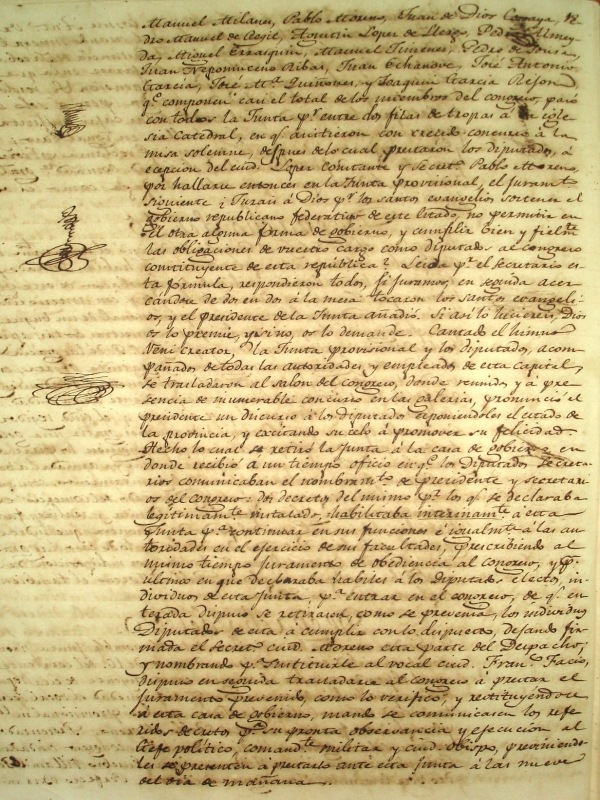 Manuel Milanes, Pablo Moreno, Juan de Dios Cosgaya, 12.
dro Manuel de Regil, Agustin Lopez de Llergo, Pedro Almey
da, Miguel Errasquin, Manuel Jimenes, Pedro de Sousa,
Juan Nepomuceno Ribas, Juan Echanove, José Antonio
Garcia, José Ma. Quiñones, y Joaquin Garcia Rejon
q.e componen casi el total de los miembros del congreso, pasó
con todos la Junta p.r entre dos filas de tropas á la igle
sia Catedral, en q.e asistieron con crecido concurso á la
misa solemne, despues de lo cual prestaron los diputados, á
ecepcion del ciud. Lopez Constante y Secret.o Pablo Moreno,
por hallarse entonces en la Junta provisional, el juram.to
siguiente ¿Jurais á Dios p.r los santos evangelios sostener el
gobierno republicano federativo de este estado, no permitir en
él otra alguna forma de gobierno, y cumplir bien y fielm.te
las obligaciones de vuestro cargo como diputados al congreso
constituyente de esta republica? Leida p.r el secretario es-
ta formula, respondieron todos, sí juramos; en seguida acer
candose de dos en dos á la mesa tocaron los santos evangeli-
os, y el presidente de la Junta añadió. Si asi lo hiciereis, Dios
os lo premie, y si no, os lo demande. Cantado el himno
Veni creator, la Junta provisional y los diputados, acom
pañados de todas las autoridades, y empleados de esta capital,
se trasladaron al salon del congreso, donde reunidos y á pre
sencia de inumerable concurso en las galerias, pronunció el
presidente un discurso á los diputados esponiendoles el estado de
la provincia, y excitando su celo á promover su felicidad.
Hecho lo cual se retiró la Junta á la casa de gobierno en
donde recibió á un tiempo oficio en q.e los Diputados Secreta
rios comunicaban el nombram.to de presidente y secretari
os del congreso: dos decretos del mismo p.r los q.e se declaraba
legitimam.te instalado, habilitaba interinam.te á esta
Junta p.a continuar en sus funciones é igualm.te á las au
toridades en el ejercicio de sus facultades, prescribiendo al
mismo tiempo juramento de obediencia al congreso, y p.r
ultimo en que declaraba habiles á los Diputados electos, in-
dividuos de esta Junta p.a entrar en el congreso, de q.e en
terada dispuso se retirasen, como se prevenia, los individuos
Diputados de esta á cumplir con lo dispuesto, dejando fir
mada el Secret.o ciud. Moreno esta parte del Despacho,
y nombrando p.a sustituirle al vocal ciud. Fran.co Facio,
dispuso en seguida trasladarse al congreso á prestar el
juramento prevenido, como lo verificó, y restituyendose
á esta casa de gobierno, mandó se comunicasen los refe
ridos decretos p.a su pronta observancia y ejecucion al
Gefe politico, comand.te militar y ciud. obispo, previniendo
les se presenten á prestarlo ante esta junta á las nueve
del dia de mañana.